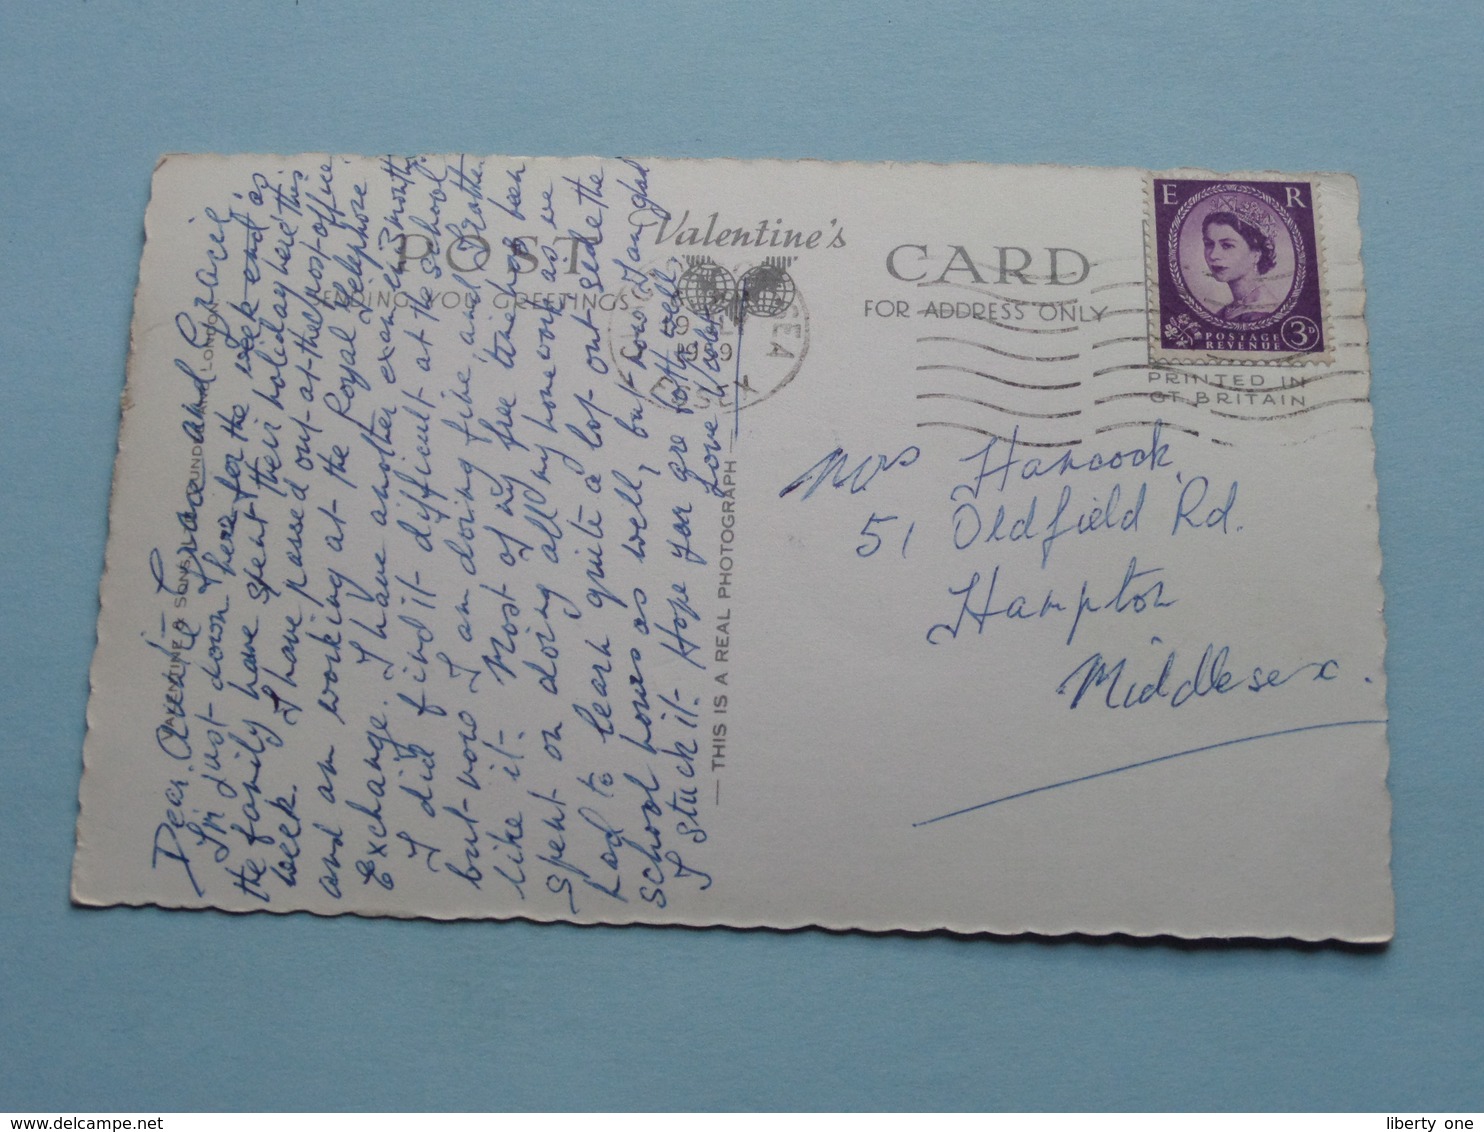 Dear Auntie and Gracie
I'm just down here for the week-end as
the family have spent their holiday here this
week. I have passed out at the post-office
and am working at the Royal Telephone
Exchange. I have another exam in months.
I did find it difficult at the school
but now I am doing fine, and rather
like it. Most of my free time has been
spent on doing all my homework as we
had to learn quite a lot out-side the
school hours as well, but now I am glad
I stuck it. Hope you are both well
Love
POST Valentine's CARD
SENDING YOU GREETINGS
FOR ADDRESS ONLY
VALENTINE & SONS LONDON
THIS IS A REAL PHOTOGRAPH
E R
POSTAGE
REVENUE
3D
PRINTED IN
GT BRITAIN
SEA
SUSSEX
Mrs Hancock,
51 Oldfield Rd.
Hampton
Middlesex.
liberty one